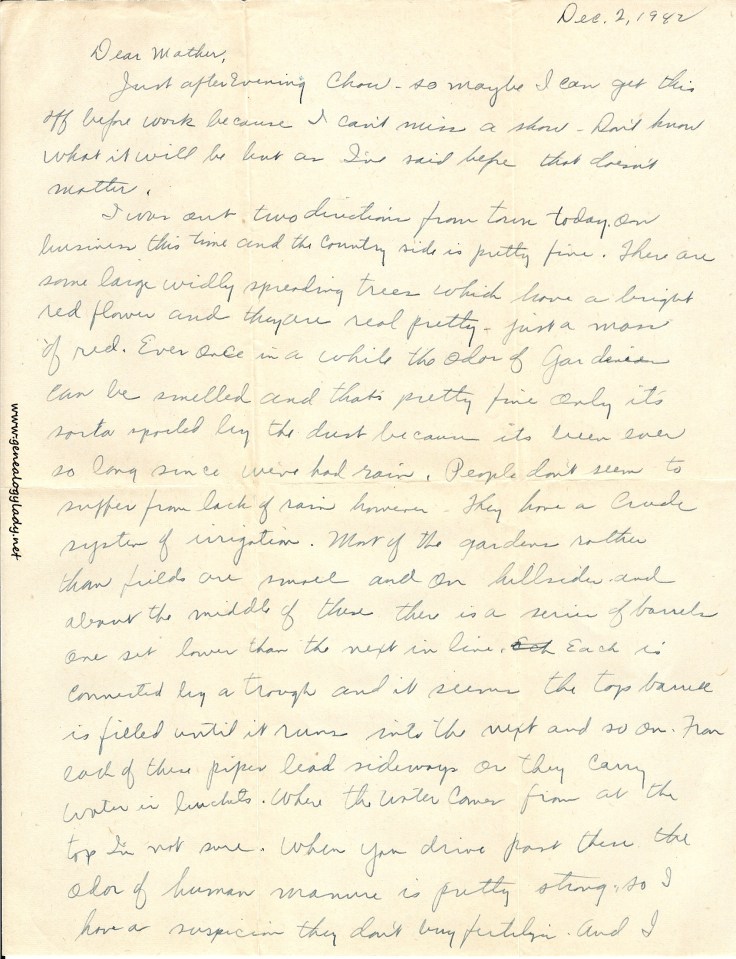 Dec. 2, 1942
Dear Mother,
Just after Evening Chow - so maybe I can get this
off before work because I can't miss a show - Don't know
what it will be but as I've said before that doesn't
matter.
I was out two directions from town today. On
business this time and the country side is pretty fine. There are
some large widly spreading trees which have a bright
red flower and they are real pretty - just a mass
of red. Ever once in a while the odor of Gardenias
can be smelled and that's pretty fine only it's
sorta spoiled by the dust because its been ever
so long since we've had rain. People don't seem to
suffer from lack of rain however - They have a Crude
system of irrigation. Most of the gardens rather
than fields are small and on hillsides and
about the middle of these there is a series of barrels
one set lower than the next in line. Each is
connected by a trough and it seems the top barrel
is filled until it runs into the next and so on. From
each of these pipes lead sideways or they carry
water in buckets. Where the water comes from at the
top I'm not sure. When you drive past these the
odor of human manure is pretty strong, so I
have a suspicion they don't buy fertilizer. And I
www.genealogylady.net